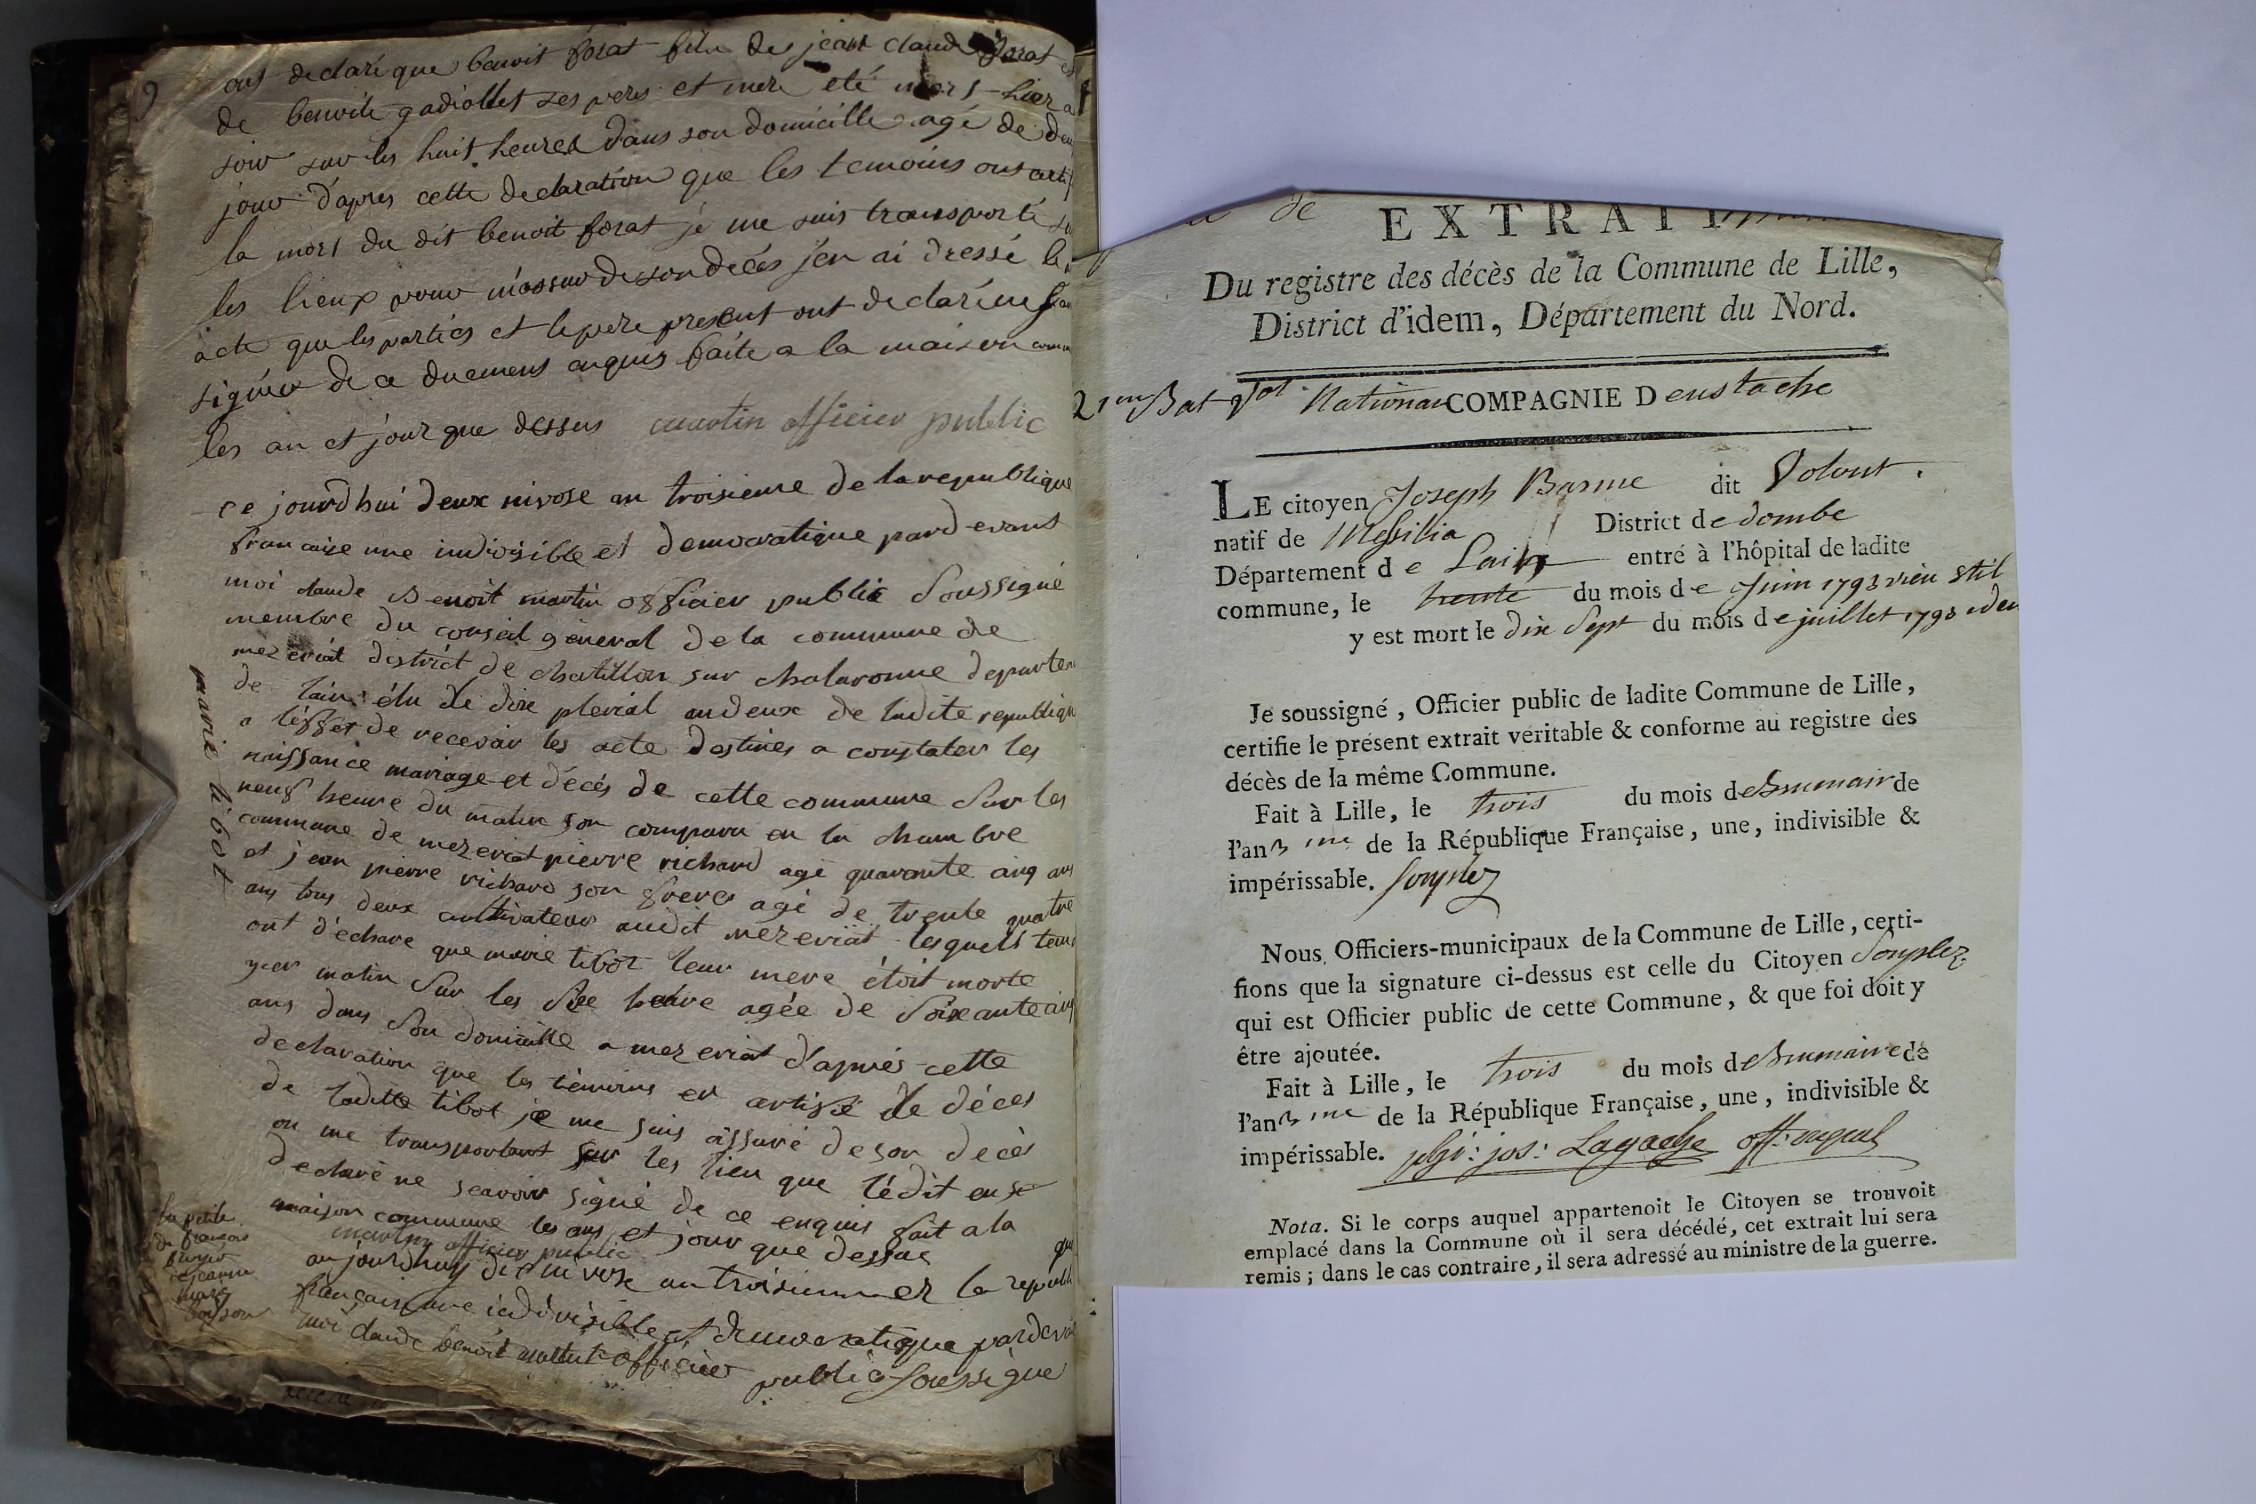 9
ont declaré que benoit forat fils des jean claude forat et
de benoite gadiollet ses peres et mere eté mort hier a
soir sur les huit heures dans son domicille agé de deux
jour d'apres cette declaration que les temoins ont certif
la mort du dit benoit forat jé me suis transporté su
les lieux pour m'assur de son décés j'en ai dressé le
acte que les parties et le pere present ont declaré ne
signér de ce duement enquis faite a la maison comm
les an et jour que dessus martin officier public
marie tibot
ce jourd'hui deux nivose an troisieme de la republique
francaise une indivisible et democratique pard evant
moi claude Benoit martin officier public Soussigné
membre du conseil géneral de la commune de
mezériat district de chatillon sur chalaronne departem
de lain élu le dixe plevial an deux de ladite republiqu
a léffet de recevoir les acte destinés a constater les
naissance mariage et décés de cette commune Sur les
neuf heure du matin son comparu en la chambre
commune de mezeriat pierre richard agé quarante cinq ans
et jean pierre richard son frere agé de trente quatre
ans tous deux cultivateur audit mezeriat lesquells tem
ont déclare que marie tibot leur mere étoit morte
yier matin Sur les Sixe heure agée de Soixante cinq
ans dans Son domicille a mezeriat d'aprués cette
declaration que les témoins en artifié de décés
de laditte tibot je me suis assuré de son décés
en me transportant sur les lieu que lédit en se
declaré ne scavoir signé de ce enquis fait a la
maison commune les ans et jour que dessue
martin officier public
la petite
de françois
aujourdhuy dix nivose an troisiemmer la republi
française une indivisible et democratique pardeva
moi claude benoit martin officier public soussigne
EXTRAIT
Du registre des décès de la Commune de Lille,
District d'idem, Département du Nord.
21me Bat on Vol National COMPAGNIE D eustache
LE citoyen Joseph Barme dit Volont.
natif de Messilia District de dombe
Département d e Lain entré à l'hôpital de ladite
commune, le trente du mois d e Juin 1793 vieu stil
y est mort le dix Sept du mois d e juillet 1793 idem
Je soussigné, Officier public de ladite Commune de Lille,
certifie le présent extrait véritable & conforme au registre des
décès de la même Commune.
Fait à Lille, le trois du mois de Brumair de
l'an 3 me de la République Française, une, indivisible &
impérissable. Souplez
Nous Officiers-municipaux de la Commune de Lille, certi-
fions que la signature ci-dessus est celle du Citoyen Souplez
qui est Officier public de cette Commune, & que foi doit y
être ajoutée.
Fait à Lille, le trois du mois de Brumaire de
l'an 3 me de la République Française, une, indivisible &
impérissable. jos: Lagache off: mpal
Nota. Si le corps auquel appartenoit le Citoyen se trouvoit
emplacé dans la Commune où il sera décédé, cet extrait lui sera
remis ; dans le cas contraire, il sera adressé au ministre de la guerre.